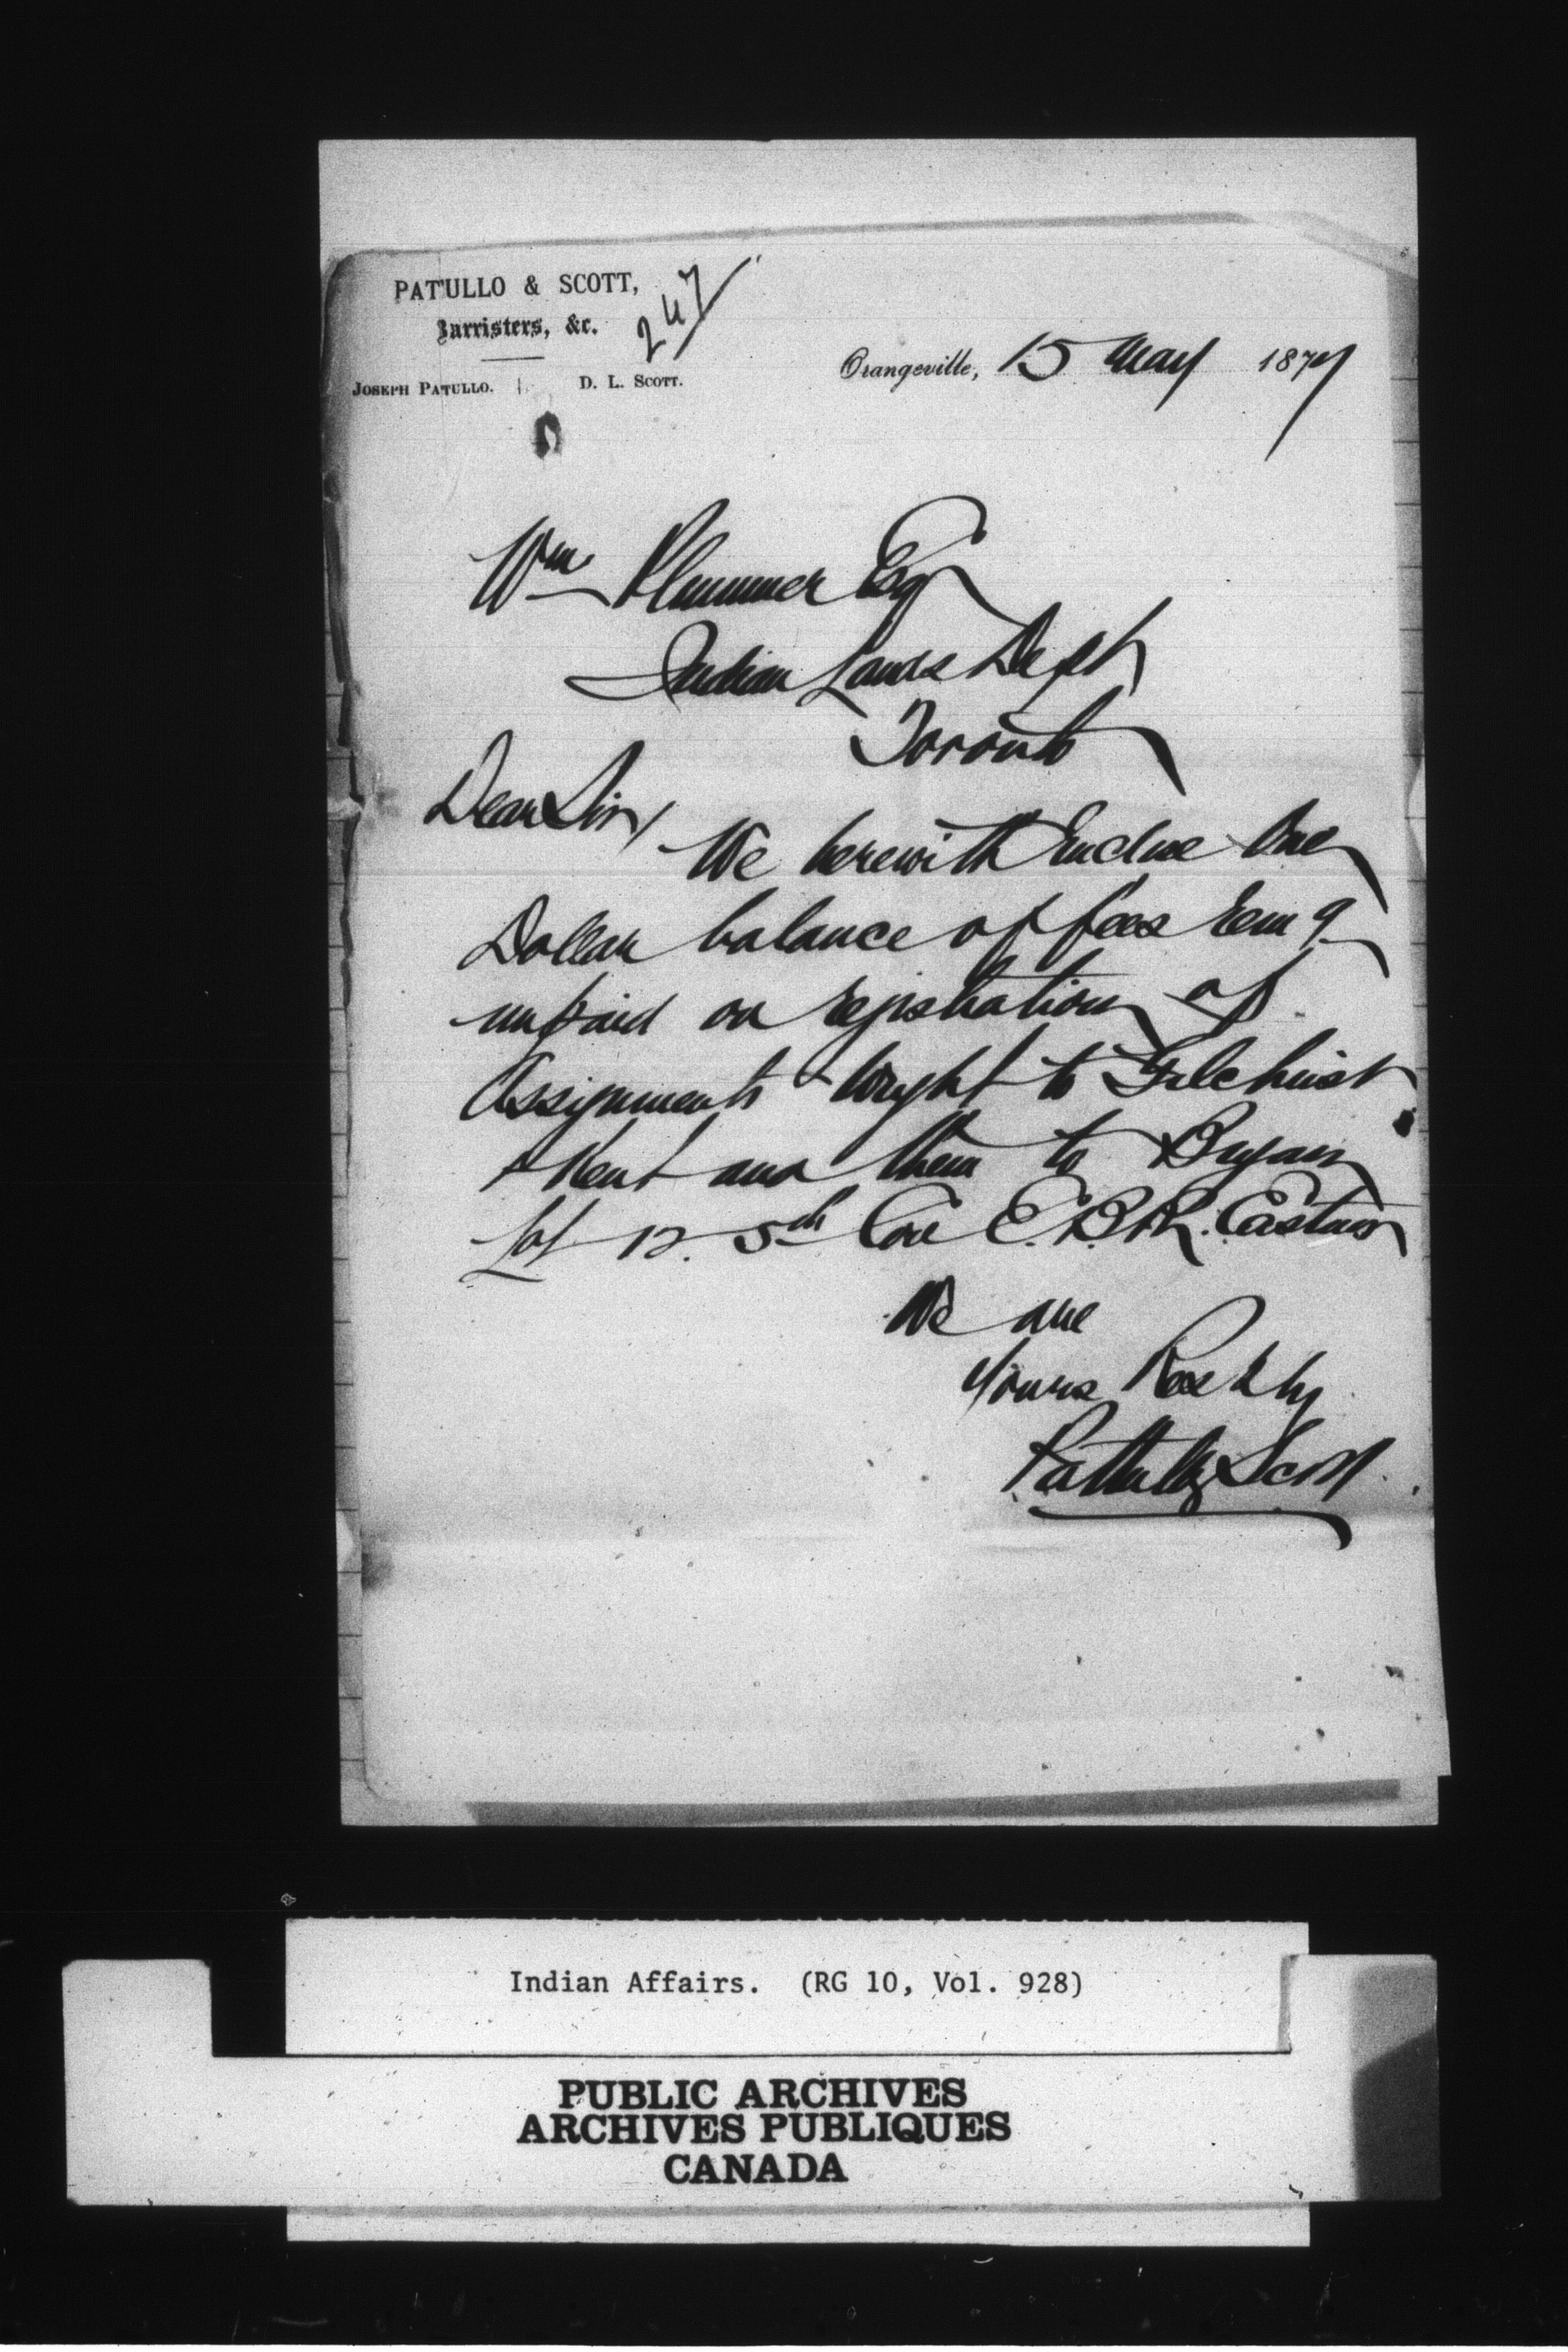 PATULLO & SCOTT,
Barristers, &c.
247
JOSEPH PATULLO. D. L. SCOTT.
Orangeville, 15 May 1877
Wm Plummer Esq
Indian Lands Dept
Toronto
Dear Sir/
We herewith Enclose One
Dollar balance of fees rem g
unpaid on registration of
Assignments Wright to Gilchrist
& Kent and them to Bryan
Lot 12. 5th Con E.B.R. Eastnor
We are
Yours Respy
Patullo & Scott
Indian Affairs. (RG 10, Vol. 928)
PUBLIC ARCHIVES
ARCHIVES PUBLIQUES
CANADA